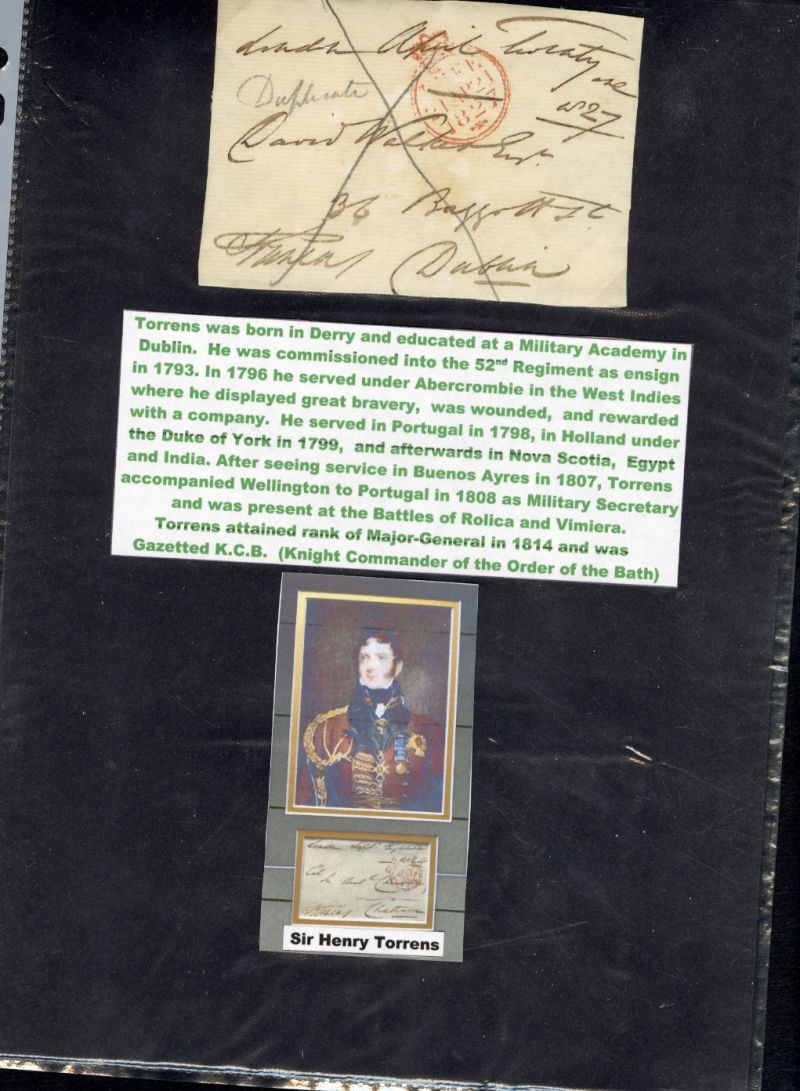 London April Twenty one
1827
Duplicate
David Walker Esqr.
36 Baggott St.
Dublin
Torrens was born in Derry and educated at a Military Academy in
Dublin. He was commissioned into the 52nd Regiment as ensign
in 1793. In 1796 he served under Abercrombie in the West Indies
where he displayed great bravery, was wounded, and rewarded
with a company. He served in Portugal in 1798, in Holland under
the Duke of York in 1799, and afterwards in Nova Scotia, Egypt
and India. After seeing service in Buenos Ayres in 1807, Torrens
accompanied Wellington to Portugal in 1808 as Military Secretary
and was present at the Battles of Rolica and Vimiera.
Torrens attained rank of Major-General in 1814 and was
Gazetted K.C.B. (Knight Commander of the Order of the Bath)
London Sept
Sir Henry Torrens